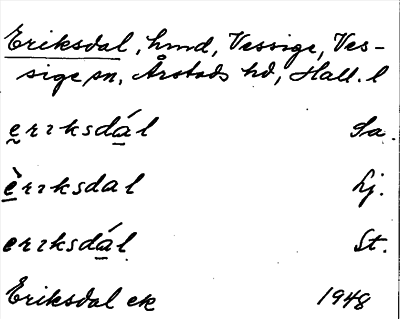 Eriksdal, hmd, Vessige, Ves-
sige sn, Årstads hd, Hall. l
ḛrıksdá̱l Sa.
è̱rıksdal Lj.
erıksdá̱l St.
Eriksdal ek 1948